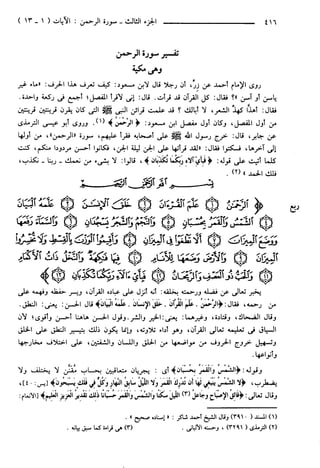 ٤١٦ الجزء الثالث - سورة الرحمن : الآيات ( ١ - ١٣ )
تفسير سورة الرحمن
وهى مكية
روى الإمام أحمد عن زر، أن رجلا قال لابن مسعود: كيف تعرف هذا الحرف: «ماء غير
ياسن أو آسن »؟ فقال: كل القرآن قد قرأت. قال: إنى لأقرأ المفصل؛ أجمع فى ركعة واحدة.
فقال: أهذًّا كهذِّ الشعر، لا أبالك ؟ قد علمت قرائن النبى ﷺ التى كان يقرن قرينتين قرينتين
من أول المفصل، وكان أول مفصل ابن مسعود: ﴿ الرَّحْمَنُ ﴾ (١). وروى أبو عيسى الترمذى
عن جابر، قال: خرج رسول الله ﷺ على أصحابه فقرأ عليهم، سورة «الرحمن»، من أولها
إلى آخرها، فسكتوا فقال: «لقد قرأتها على الجن ليلة الجن، فكانوا أحسن مردودا منكم، كنت
كلما أتيت على قوله: ﴿ فَبِأَيِّ آلَاءِ رَبِّكُمَا تُكَذِّبَانِ ﴾، قالوا: لا بشىء من نعمك ـ ربنا ـ نكذب،
فلك الحمد » (٢) .
بسم الله الرحمن الرحيم
ربع
الرَّحْمَنُ ۝ عَلَّمَ الْقُرْآنَ ۝ خَلَقَ الْإِنسَانَ ۝ عَلَّمَهُ الْبَيَانَ
۝ الشَّمْسُ وَالْقَمَرُ بِحُسْبَانٍ ۝ وَالنَّجْمُ وَالشَّجَرُ يَسْجُدَانِ ۝ وَالسَّمَاءَ رَفَعَهَا
وَوَضَعَ الْمِيزَانَ ۝ أَلَّا تَطْغَوْا فِي الْمِيزَانِ ۝ وَأَقِيمُوا الْوَزْنَ بِالْقِسْطِ وَلَا تُخْسِرُوا
الْمِيزَانَ ۝ وَالْأَرْضَ وَضَعَهَا لِلْأَنَامِ ۝ فِيهَا فَاكِهَةٌ وَالنَّخْلُ ذَاتُ الْأَكْمَامِ
۝ وَالْحَبُّ ذُو الْعَصْفِ وَالرَّيْحَانُ ۝ فَبِأَيِّ آلَاءِ رَبِّكُمَا تُكَذِّبَانِ ۝
يخبر تعالى عن فضله ورحمته بخلقه: أنه أنزل على عباده القرآن، ويسر حفظه وفهمه على
من رحمه، فقال: ﴿الرَّحْمَنُ . عَلَّمَ الْقُرْآنَ . خَلَقَ الْإِنسَانَ . عَلَّمَهُ الْبَيَانَ﴾ قال الحسن: يعنى: النطق.
وقال الضحاك، وقتادة، وغيرهما: يعنى: الخير والشر. وقول الحسن هاهنا أحسن وأقوى؛ لأن
السياق فى تعليمه تعالى القرآن، وهو أداء تلاوته، وإنما يكون ذلك بتيسير النطق على الخلق
وتسهيل خروج الحروف من مواضعها من الحلق واللسان والشفتين، على اختلاف مخارجها
وأنواعها.
وقوله: ﴿الشَّمْسُ وَالْقَمَرُ بِحُسْبَانٍ﴾ أى : يجريان متعاقبين بحساب مقنن لا يختلف ولا
يضطرب، ﴿لَا الشَّمْسُ يَنبَغِي لَهَا أَن تُدْرِكَ الْقَمَرَ وَلَا اللَّيْلُ سَابِقُ النَّهَارِ وَكُلٌّ فِي فَلَكٍ يَسْبَحُونَ﴾ [يس: ٤٠]،
وقال تعالى: ﴿فَالِقُ الْإِصْبَاحِ وَجَاعِلُ (٣) اللَّيْلِ سَكَنًا وَالشَّمْسَ وَالْقَمَرَ حُسْبَانًا ذَلِكَ تَقْدِيرُ الْعَزِيزِ الْعَلِيمِ﴾ [الأنعام:
(١) المسند ( ٣٩١٠ ) وقال الشيخ أحمد شاكر : « إسناده صحيح » .
(٢) الترمذى ( ٣٢٩١ ) ، وحسنه الألبانى . (٣) هى قراءة كما سبق بيانه .